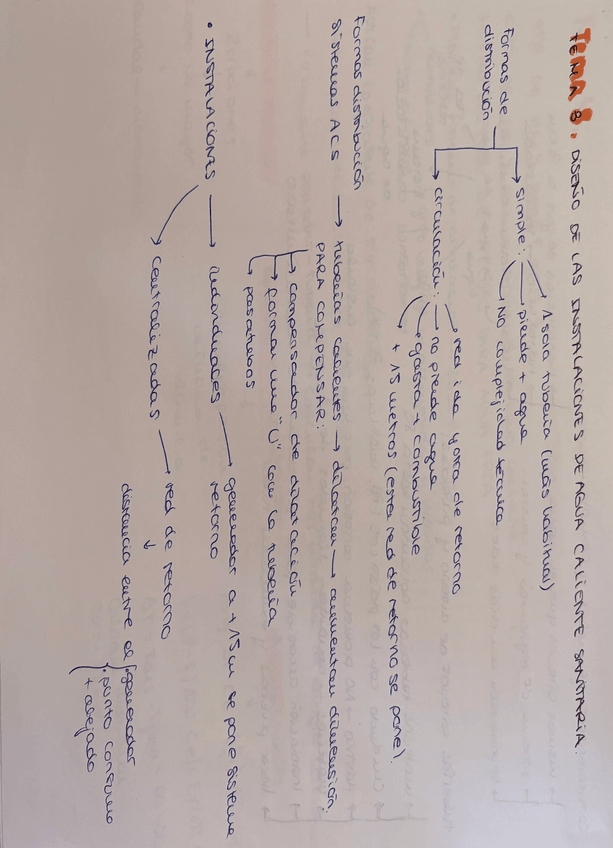 Tema 8.
TEMA 8. DISEÑO DE LAS INSTALACIONES DE AGUA CALIENTE SANITARIA:
Formas de
distribución
simple:
1 sola tubería (más habitual)
pierde + agua
NO complejidad técnica
circulación:
red ida y otra de retorno
no pierde agua
gasta + combustible
+ 15 metros (esta red de retorno se pone).
Formas distribución
sistemas ACS → tuberías calientes → dilatan → aumentan dimensión:
PARA COMPENSAR:
compensador de dilatación
formar una "U" con la tubería
pasatubos
• INSTALACIONES → individuales → generador a + 15m se pone sistema
retorno
centralizadas → red de retorno
↓
distancia entre el
generador
punto consumo
+ alejado